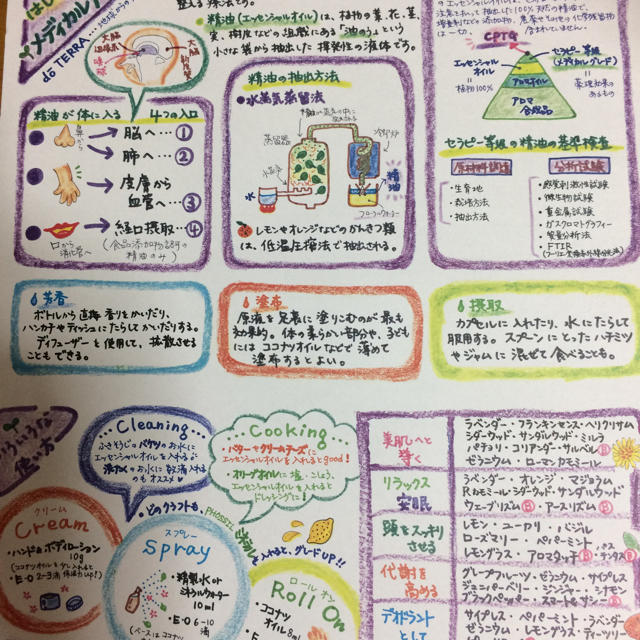 メディカルア
dō TERRA
整える療法です。
精油(エッセンシャルオイル)は、植物の葉、花、茎、
実、樹皮などの組織にある「油のう」という
小さな袋から抽出した揮発性の液体です。
大脳
辺縁系
大脳
新皮質
精油が体に入る 4つの入口
鼻から
脳へ…①
肺へ…②
皮膚から
血管へ…③
経口摂取…④
口から
消化管へ
(食品添加物認可の
精油のみ)
精油の抽出方法
水蒸気蒸留法
蒸留器
冷却タンク
水蒸気
精油
フローラルウォーター
レモンやオレンジなどのかんきつ類
は、低温圧搾法で抽出される。
の、エッセンシャルオイルは、
一切、含まれていません。
CPTG
エッセンシャル
オイル
=植物100%
セラピー等級
(メディカルグレード)
=薬理効果の
あるもの
アロマオイル
アロマ
合成品
セラピー等級の精油の基準検査
原材料試験
・生育地
・栽培方法
・抽出方法
分析試験
・感覚刺激性試験
・微生物試験
・重金属試験
・ガスクロマトグラフィー
・質量分析法
・FTIR
芳香
ボトルから直接香りをかいだり、
ハンカチやティッシュにたらしてかいだりする。
ディフューザーを使用して、拡散させる
こともできる。
塗布
原液を足裏に塗りこむのが最も
効果的。体の柔らかい部分や、子ども
にはココナツオイルなどで薄めて
塗布するとよい。
摂取
カプセルに入れたり、水にたらして
服用する。スプーンにとったハチミツ
やジャムに混ぜて食べることも。
いろいろな
使い方
Cleaning
ふきそうじのバケツのお水に
エッセンシャルオイルを入れる
洗たくのお水に数滴入れる
のもオススメ
Cooking
・バターやクリームチーズに
エッセンシャルオイルを入れると good!
・オリーブオイルに塩・こしょう、
エッセンシャルオイルを入れると
ドレッシングに!
どのクラフトも、
を入れると、グレードUP!!
クリーム
Cream
・ハンド&ボディローション
10g
・E・O 2~3滴
スプレー
Spray
・精製水or
10ml
・E・O 6~10
滴
ロールオン
Roll On
・ココナツ
オイル 8ml
・E・O
美肌へと
導く
ラベンダー・フランキンセンス・ヘリクリサム
シダーウッド・サンダルウッド・ミルラ
パチョリ・コリアンダー・サルベル Ⓑ
ゼラニウム・ローマンカモミール
リラックス
安眠
ラベンダー・オレンジ・マジョラム
Rカモミール・シダーウッド・サンダルウッド
ウェーブリズム Ⓑ・アースリズム Ⓑ
頭をスッキリ
させる
レモン・ユーカリ・バジル
ローズマリー・ペパーミント
レモングラス・アロマタッチ Ⓑ
代謝を
高める
グレープフルーツ・ゼラニウム・サイプレス
ジュニパーベリー・ジンジャー・シナモン
ブラックペッパー・スマート&サシー Ⓑ
デオドラント
として
サイプレス・ペパーミント・ラベンダー
ゼラニウム・レモン・ティー